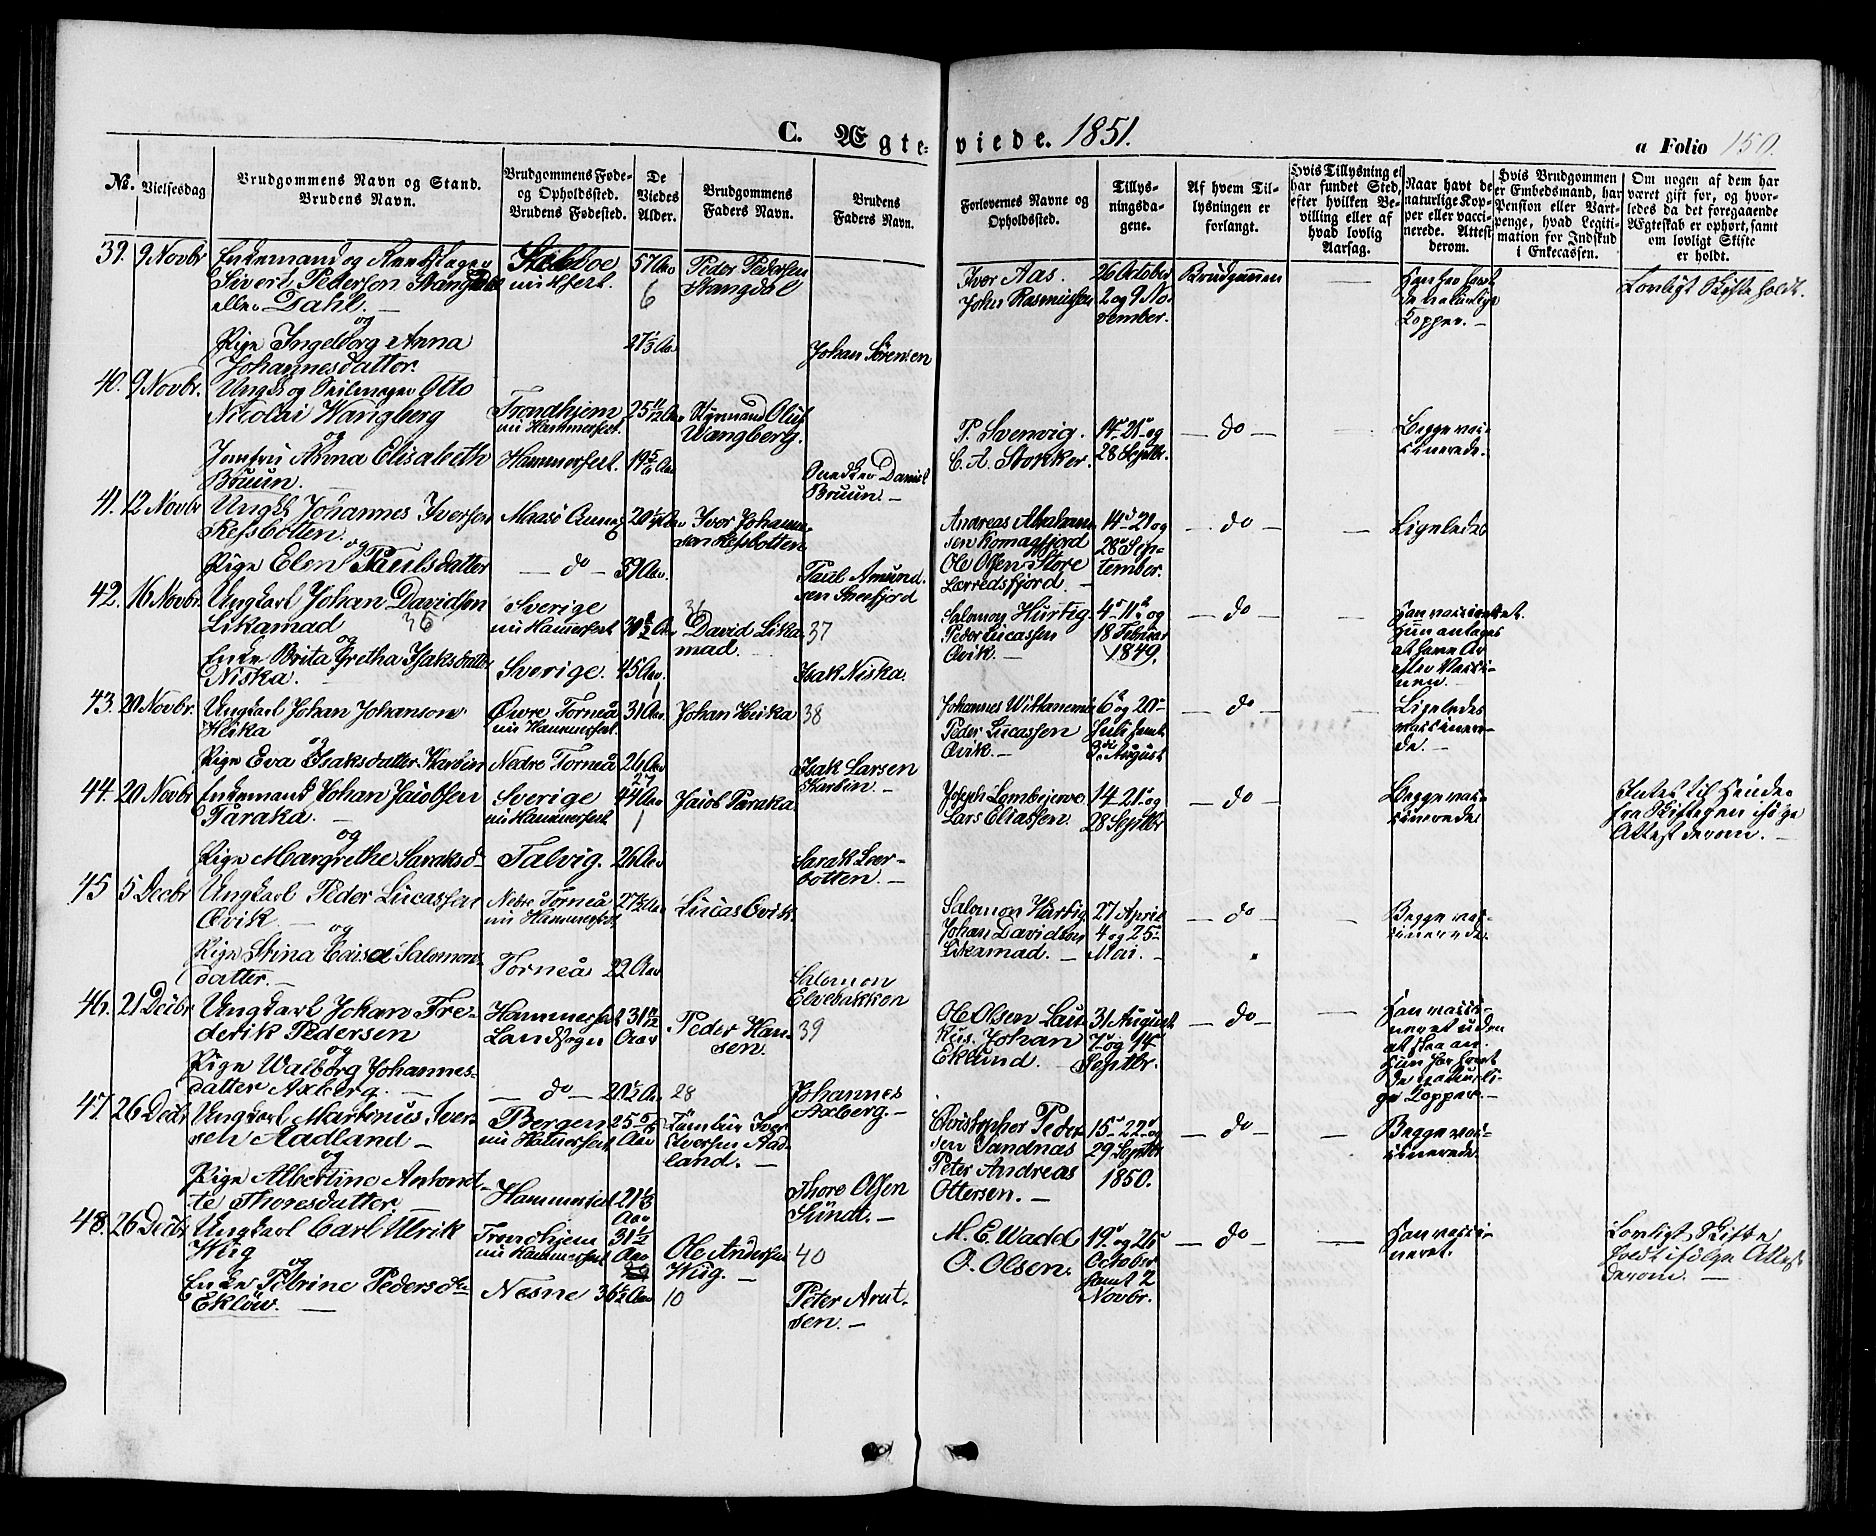 C. Ægte-viede. 1851.
a Folio 150.
No.
Vielsesdag
Brudgommens Navn og Stand.
Brudens Navn.
Brudgommens Føde-
og Opholdssted.
Brudens Fødested.
De
Viedes
Alder.
Brudgommens
Faders Navn.
Brudens
Faders Navn.
Forlovernes Navne og
Opholdssted.
Tillys-
ningsda-
gene.
Af hvem Til-
lysningen er
forlangt.
Hvis Tillysning ei
har fundet Sted,
efter hvilken Be-
villing eller af
hvad lovlig
Aarsag.
Naar havt de
naturlige Kop-
per eller vacci-
nerede. Attest
derom.
Hvis Brudgommen
er Embedsmand, har
Pension eller Vart-
penge, hvad Legiti-
mation for Indskud
i Enkecassen.
Om nogen af dem har
været gift før, og hvor-
ledes da det foregaaende
Ægteskab er ophørt, samt
om lovligt Skifte
er holdt.
39. 9 Novbr
Enkemand og
Sivert Pedersen Stangdal
eller Dahl. —
og
Pige Ingeborg Anna
Johannesdatter.
nu Hfest.
57 Aar
6
27 1/3 Aar
Peder Pedersen
Stangdal
Johan Sörensen
Iver Aas.
John Rasmussen
26 October
2 og 9 No-
vember.
Brudgommen
—
Han har havt
de naturlige
Kopper. —
Lovligt Skifte holdt.
40. 9 Novbr.
Ungk. og Seilmager Otto
Nicolai Wangberg
og
Jomfru Anna Elisabeth
Bruun. —
Trondhjem
nu Hammerfest.
Hammerfest.
25 11/12 Aar
19 5/6 Aar
Styrmand Oluf
Wangberg.
Snedker Daniel
Bruun. —
P. Svenvig.
C. A. Stokker.
14 - 21 og
28 Septbr.
— do —
—
Begge vac-
cinerede.
41. 12 Novbr
Ungk. Johannes Iversen
Refsbotten.
og
Pige Elen Paulsdatter
Maasö Anneg
— do —
39 Aar.
Iver Johanne-
sen Refsbotten
Paul Amund-
sen Sneefjord
Andreas Abraham-
sen Komagfjord
Ole Olsen Store
Lerredsfjord —
14 - 21 og
28 Sep-
tember.
— do —
—
Ligeledes
42. 16 Novbr.
Ungkarl Johan Davidsen
Likamad 36
og
Enke Brita Gretha Isaksdatter
Niska. —
Sverige
nu Hammerfest
Sverige.
45 Aar.
36
David Lika-
mad.
37
Isak Niska.
Salomon Hurtig
Peder Lucassen
Qvik. —
4 - 11 og
18 Februar
1849.
— do —
—
Han vaccineret.
Hun antages
at have Ar
efter Vacci-
nen. —
43. 20 Novbr.
Ungkarl Johan Johanson
Heika
og
Pige Eva Isaksdatter Karbin
Övre Torneå
nu Hammerfest.
Nedre Torneå
31 Aar
26 Aar
Johan Heika
38
Isak Larsen
Karbin —
Johannes Wittaniemi
Peder Lucassen
Qvik. —
6 og 20
Juli samt
3die August
— do —
—
Ligeledes
vaccinere-
de. —
44. 20 Novbr
Enkemand Johan Jacobsen
Paraka. —
og
Pige Margrethe Saraksd
Sverige
nu Hammerfest
Talvig.
27
44 Aar
1
26 Aar
Jacob Paraka
Sarak Leer-
botten. —
Joseph Lombijerve
Lars Eliassen.
14 - 21 og
28 Septbr
— do —
—
Begge vac-
cinerede
Intet til Hinder
fra Skiftet ifölge
Attest derom. —
45 5 Decbr
Ungkarl Peder Lucassen
Qvik. —
og
Pige Stina Caisa Salomons-
datter. —
Nedre Torneå
nu Hammerfest
Torneå
22 Aar
Lucas Qvik.
Salomon
Elvebakken
Salomon Hurtig
Johan Davidsen
Likamad. —
27 April
4 og 25
Mai. —
— do —
—
Begge vac-
cinerede.
46. 21 Decbr
Ungkarl Johan Fre-
derik Pedersen
og
Pige Walborg Johannes-
datter Axberg. —
Hammerfest
Landsogn
— do —
Aar
28
Peder Han-
sen.
39
Johannes
Axberg. —
Ole Olsen Lau-
kus. Johan
Eklund. —
31 August
7 og 14
Septbr.
— do —
—
Han vacci-
neret uden
at slaa an.
Hun har havt
de naturli-
ge Kopper. —
47. 26 Decbr
Ungkarl Martinus Iver-
sen Aadland —
og
Pige Albertine Antonet-
te Thoresdatter.
Bergen
nu Hamerfest
Hammerfest
25
Aar
Aar
Iver
Iversen Aad-
land. —
Thore Olsen
Sundt. —
Christopher Peder-
sen Sandnæs
Peter Andreas
Ottersen. —
15 - 22 og
29 Septbr
1850.
— do —
—
Begge vac-
cinerede.
48. 26 Decbr
Ungkarl Carl Ulrik
Wiig
og
Enke Petrine Pedersdtr
Eklöw. —
Trondhjem
nu Hammerfest
Nesne
31 1/2
Aar
36 1/2 Aar
Ole Andersen
Wiig. —
10
40
Peter Arnt-
sen. —
M. E. Wadd
O. Olsen.
19 og 26
October
samt 2
Novbr.
— do —
—
Han vacci-
neret.
Lovligt Skifte
holdt ifölge Attest
derom. —